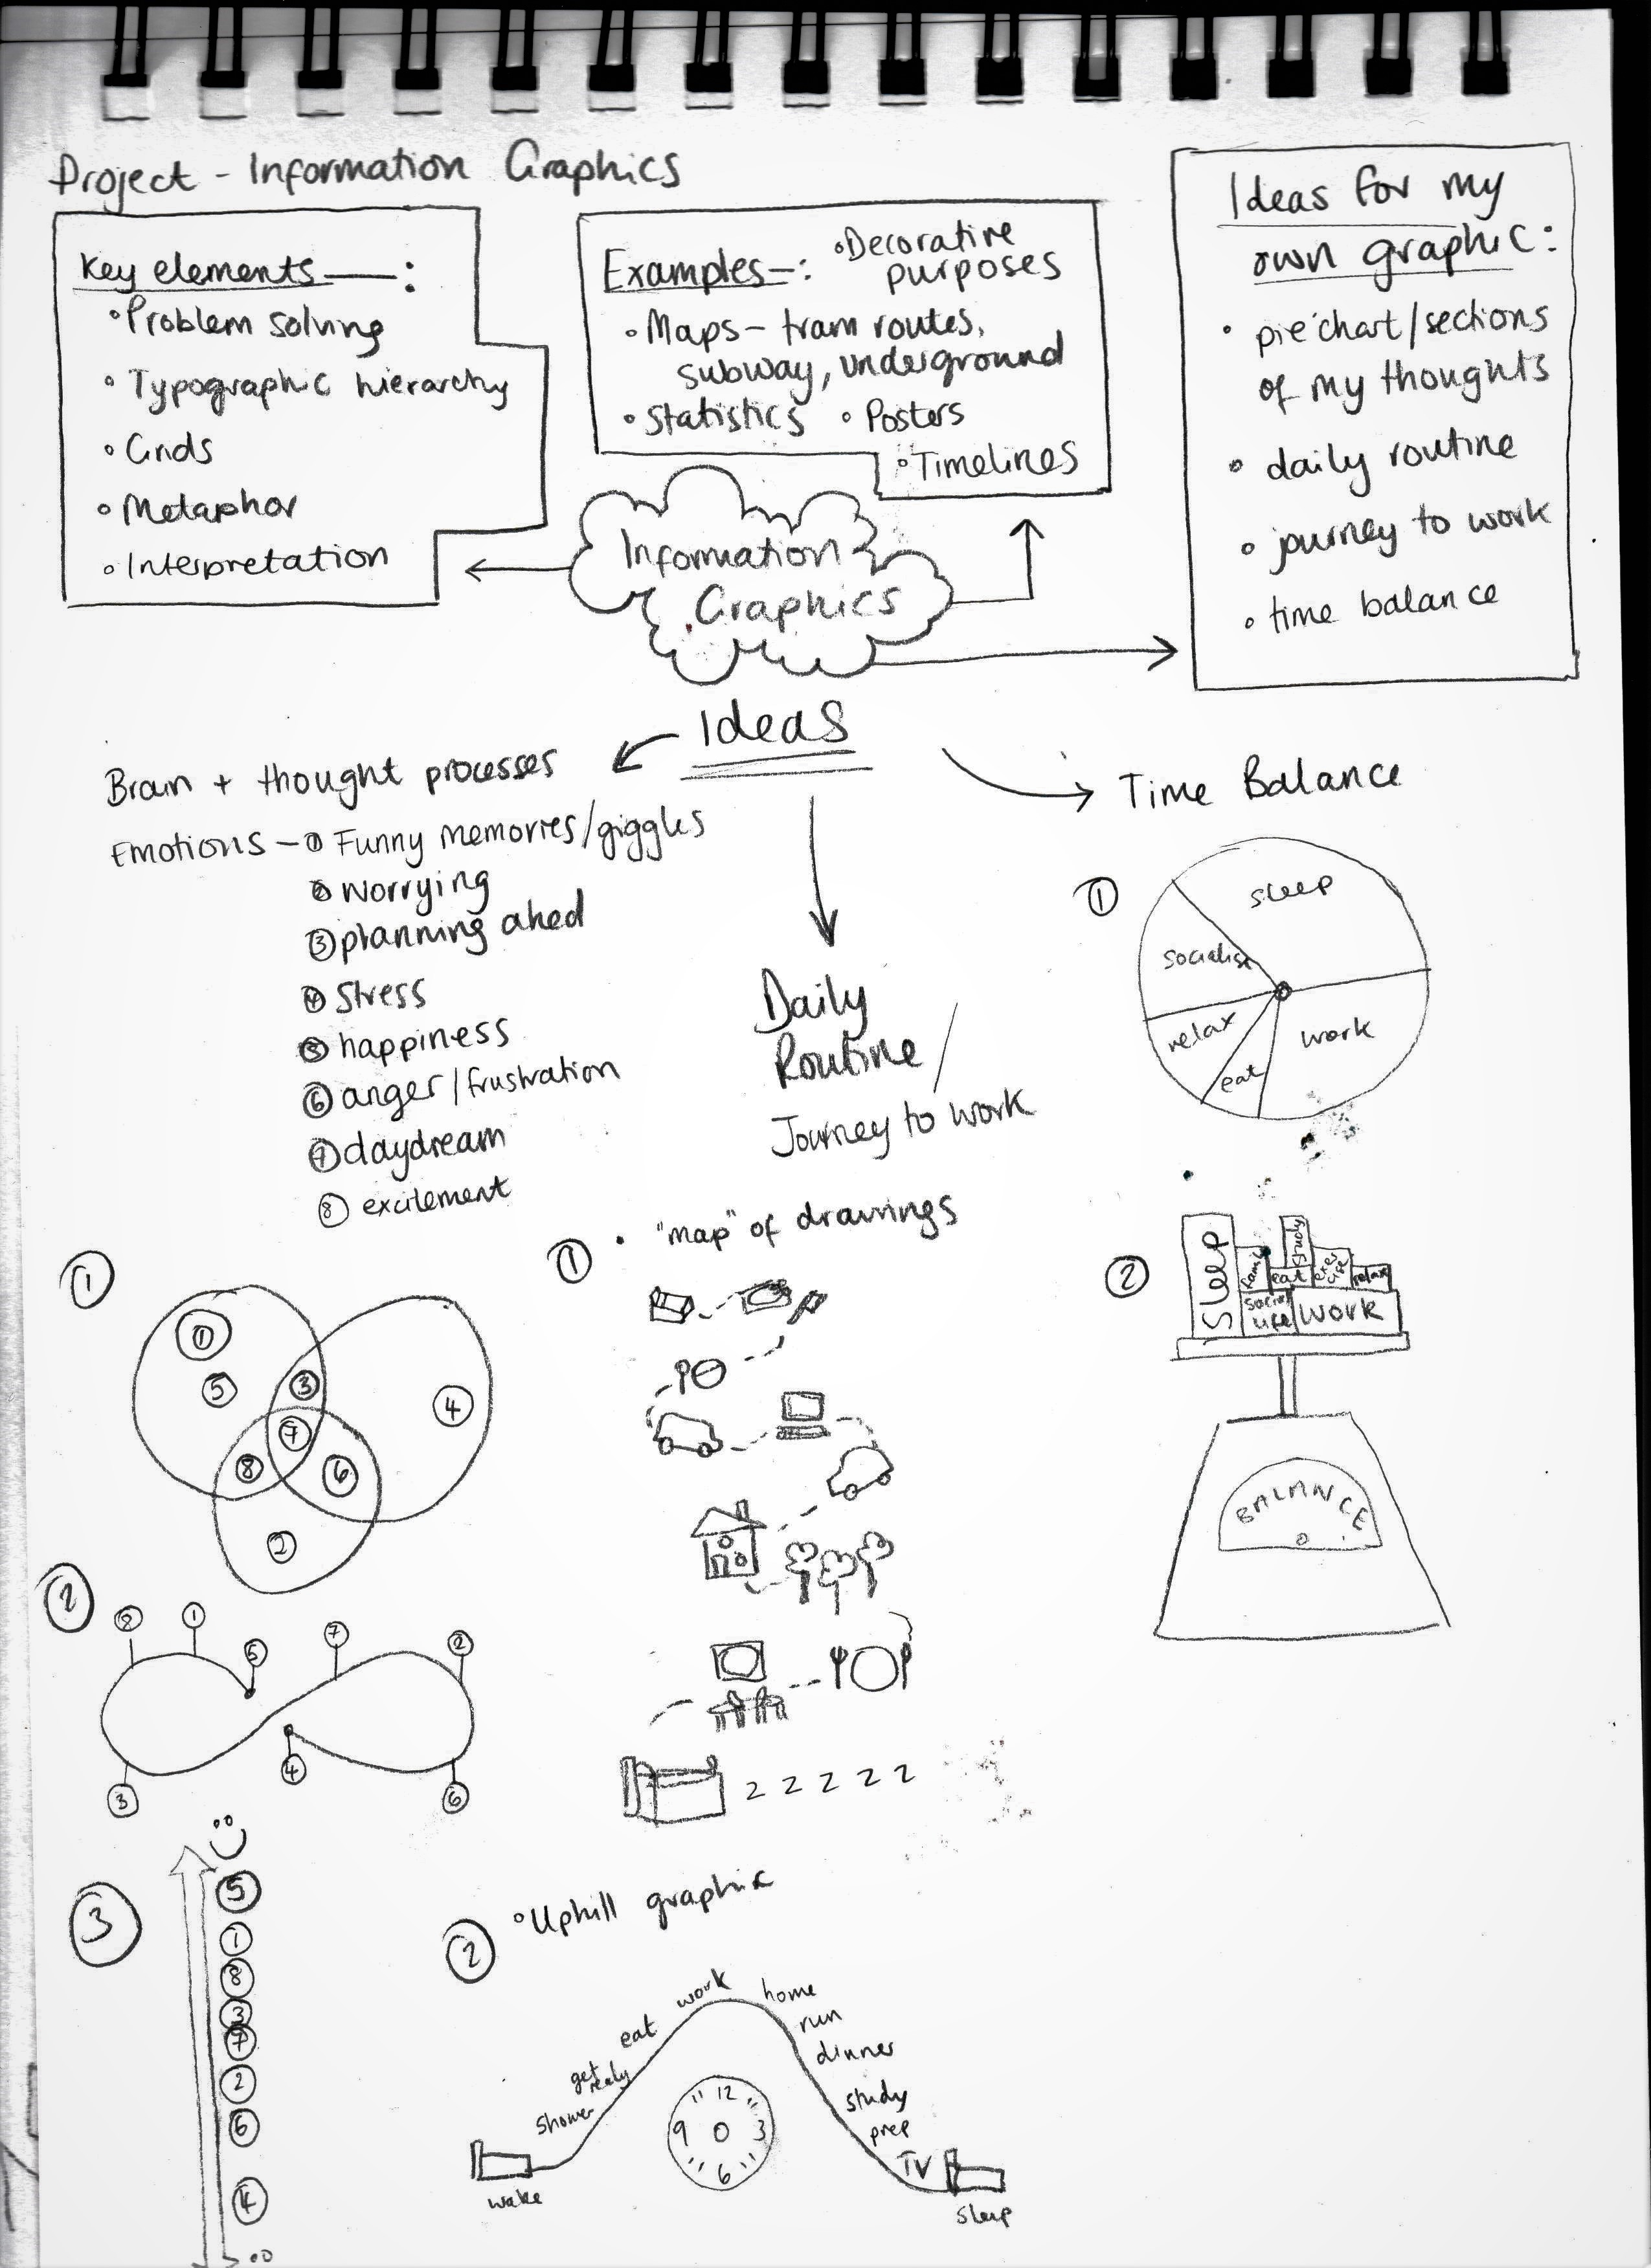 Project - Information Graphics
Key elements — :
• Problem solving
• Typographic hierarchy
• Grids
• Metaphor
• Interpretation
Examples - :
• Decorative
purposes
• Maps - tram routes,
subway, underground
• Statistics • Posters
• Timelines
Ideas for my
own graphic:
• pie chart/sections
of my thoughts
• daily routine
• journey to work
• time balance
Information
Graphics
Ideas
Brain + thought processes
Emotions - ① Funny memories/giggles
② worrying
③ planning ahed
④ stress
⑤ happiness
⑥ anger/frustration
⑦ daydream
⑧ excitement
①
①
⑤
③
④
⑦
⑧
⑥
②
②
⑧
①
⑤
⑦
②
③
④
⑥
③
⑤
①
⑧
③
⑦
②
⑥
④
Daily
Routine /
Journey to work
① • "map" of drawings
z z z z z
② • Uphill graphic
wake
shower
get
ready
eat
work
home
run
dinner
study
prep
TV
sleep
12
3
6
9
Time Balance
①
sleep
socialise
relax
eat
work
②
Sleep
family
study
eat
exercise
relax
social
life
work
BALANCE